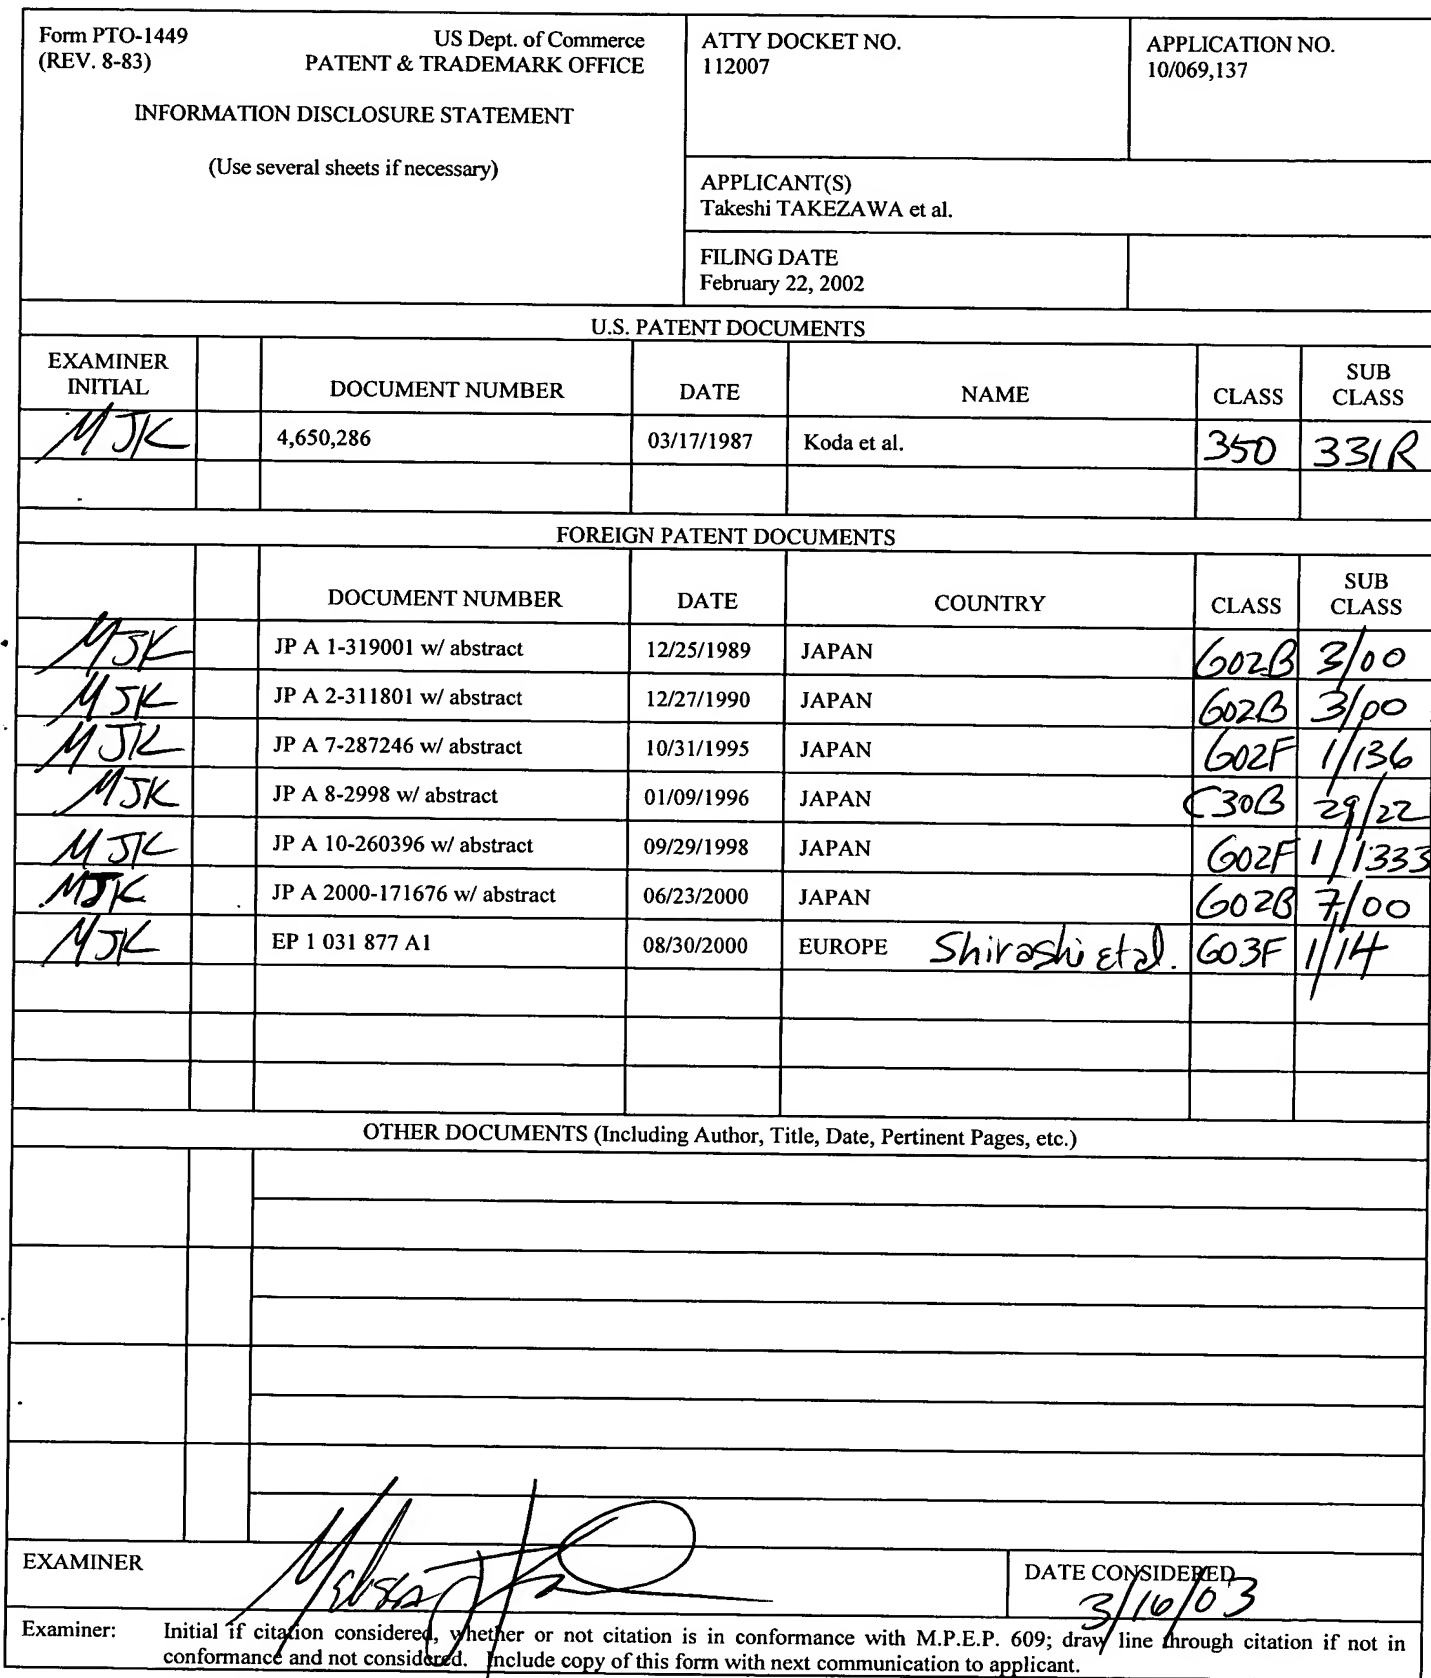 Form PTO-1449 US Dept. of Commerce
(REV. 8-83) PATENT & TRADEMARK OFFICE
INFORMATION DISCLOSURE STATEMENT
(Use several sheets if necessary)
ATTY DOCKET NO.
112007
APPLICATION NO.
10/069,137
APPLICANT(S)
Takeshi TAKEZAWA et al.
FILING DATE
February 22, 2002
U.S. PATENT DOCUMENTS
EXAMINER INITIAL DOCUMENT NUMBER DATE NAME CLASS SUB CLASS
MJK 4,650,286 03/17/1987 Koda et al. 350 331R
FOREIGN PATENT DOCUMENTS
DOCUMENT NUMBER DATE COUNTRY CLASS SUB CLASS
MJK JP A 1-319001 w/ abstract 12/25/1989 JAPAN G02B 3/00
MJK JP A 2-311801 w/ abstract 12/27/1990 JAPAN G02B 3/00
MJK JP A 7-287246 w/ abstract 10/31/1995 JAPAN G02F 1/136
MJK JP A 8-2998 w/ abstract 01/09/1996 JAPAN C30B 29/22
MJK JP A 10-260396 w/ abstract 09/29/1998 JAPAN G02F 1/1333
MJK JP A 2000-171676 w/ abstract 06/23/2000 JAPAN G02B 7/00
MJK EP 1 031 877 A1 08/30/2000 EUROPE Shirashi et al. G03F 1/14
OTHER DOCUMENTS (Including Author, Title, Date, Pertinent Pages, etc.)
EXAMINER
DATE CONSIDERED
3/16/03
Examiner: Initial if citation considered, whether or not citation is in conformance with M.P.E.P. 609; draw line through citation if not in
conformance and not considered. Include copy of this form with next communication to applicant.